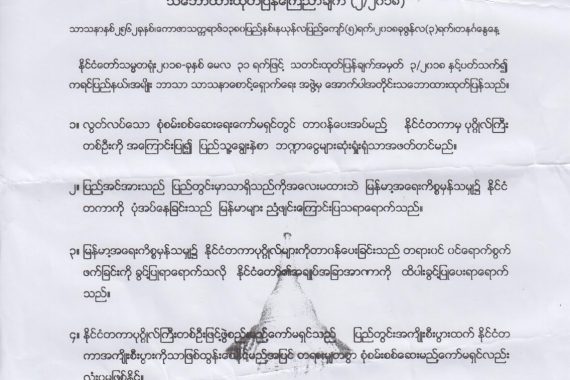 သဘောထားထုတ်ပြန်ကြေညာချက် (၂/၂၀၁၈)
သာသနာနှစ်၂၅၆၂ခုနှစ်၊ကောဇာသတ္တရာဇ်၁၃၈၀ပြည့်နှစ်၊နယုန်လပြည့်ကျော်(၅)ရက်၊၂၀၁၈ခုဇွန်လ(၃)ရက်၊တနင်္ဂနွေနေ့
နိုင်ငံတော်သမ္မတရုံး၂၀၁၈-ခုနှစ် မေလ ၃၁ ရက်ဖြင့် သတင်းထုတ်ပြန်ချက်အမှတ် ၃/၂၀၁၈ နှင့်ပတ်သက်၍
ကရင်ပြည်နယ်၊အမျိုး ဘာသာ သာသနာစောင့်ရှောက်ရေး အဖွဲ့မှ အောက်ပါအတိုင်းသဘောထားထုတ်ပြန်သည်။
၁။ လွတ်လပ်သော စုံစမ်းစစ်ဆေးရေးကော်မရှင်တွင် တာဝန်ပေးအပ်မည့် နိုင်ငံတကာမှ ပုဂ္ဂိုလ်ကြီး
တစ်ဦးကို အကြောင်းပြု၍ ပြည်သူ့ချွေးနဲစာ ဘဏ္ဍာငွေများဆုံးရှုံးရုံသာအဖတ်တင်မည်။
၂။ ပြည်အင်အားသည် ပြည်တွင်းမှာသာရှိသည်ကိုအလေးမထားဘဲ မြန်မာ့အရေးကိစ္စမှန်သမျှ၌ နိုင်ငံ
တကာကို ပုံအပ်နေခြင်းသည် မြန်မာများ ညံ့ဖျင်းကြောင်းပြသရာရောက်သည်။
၃။ မြန်မာ့အရေးကိစ္စမှန်သမျှ၌ နိုင်ငံတကာပုဂ္ဂိုလ်များကိုတာဝန်ပေးခြင်းသည် တရားဝင် ဝင်ရောက်စွက်
ဖက်ခြင်းကို ခွင့်ပြုရာရောက်သလို နိုင်ငံတော်၏အချုပ်အခြာအာဏာကို ထိပါးခွင့်ပြုပေးရာရောက်
သည်။
၄။ နိုင်ငံတကာပုဂ္ဂိုလ်ကြီးတစ်ဦးဖြင့်ဖွဲ့စည်းမည့်ကော်မရှင်သည် ပြည်တွင်းအကျိုးစီးပွားထက် နိုင်ငံတ
ကာအကျိုးစီးပွားကိုသာဖြစ်ထွန်းစေနိုင်မည့်အပြင် တရားမျှတစွာ စုံစမ်းစစ်ဆေးမည့်ကော်မရှင်လည်း